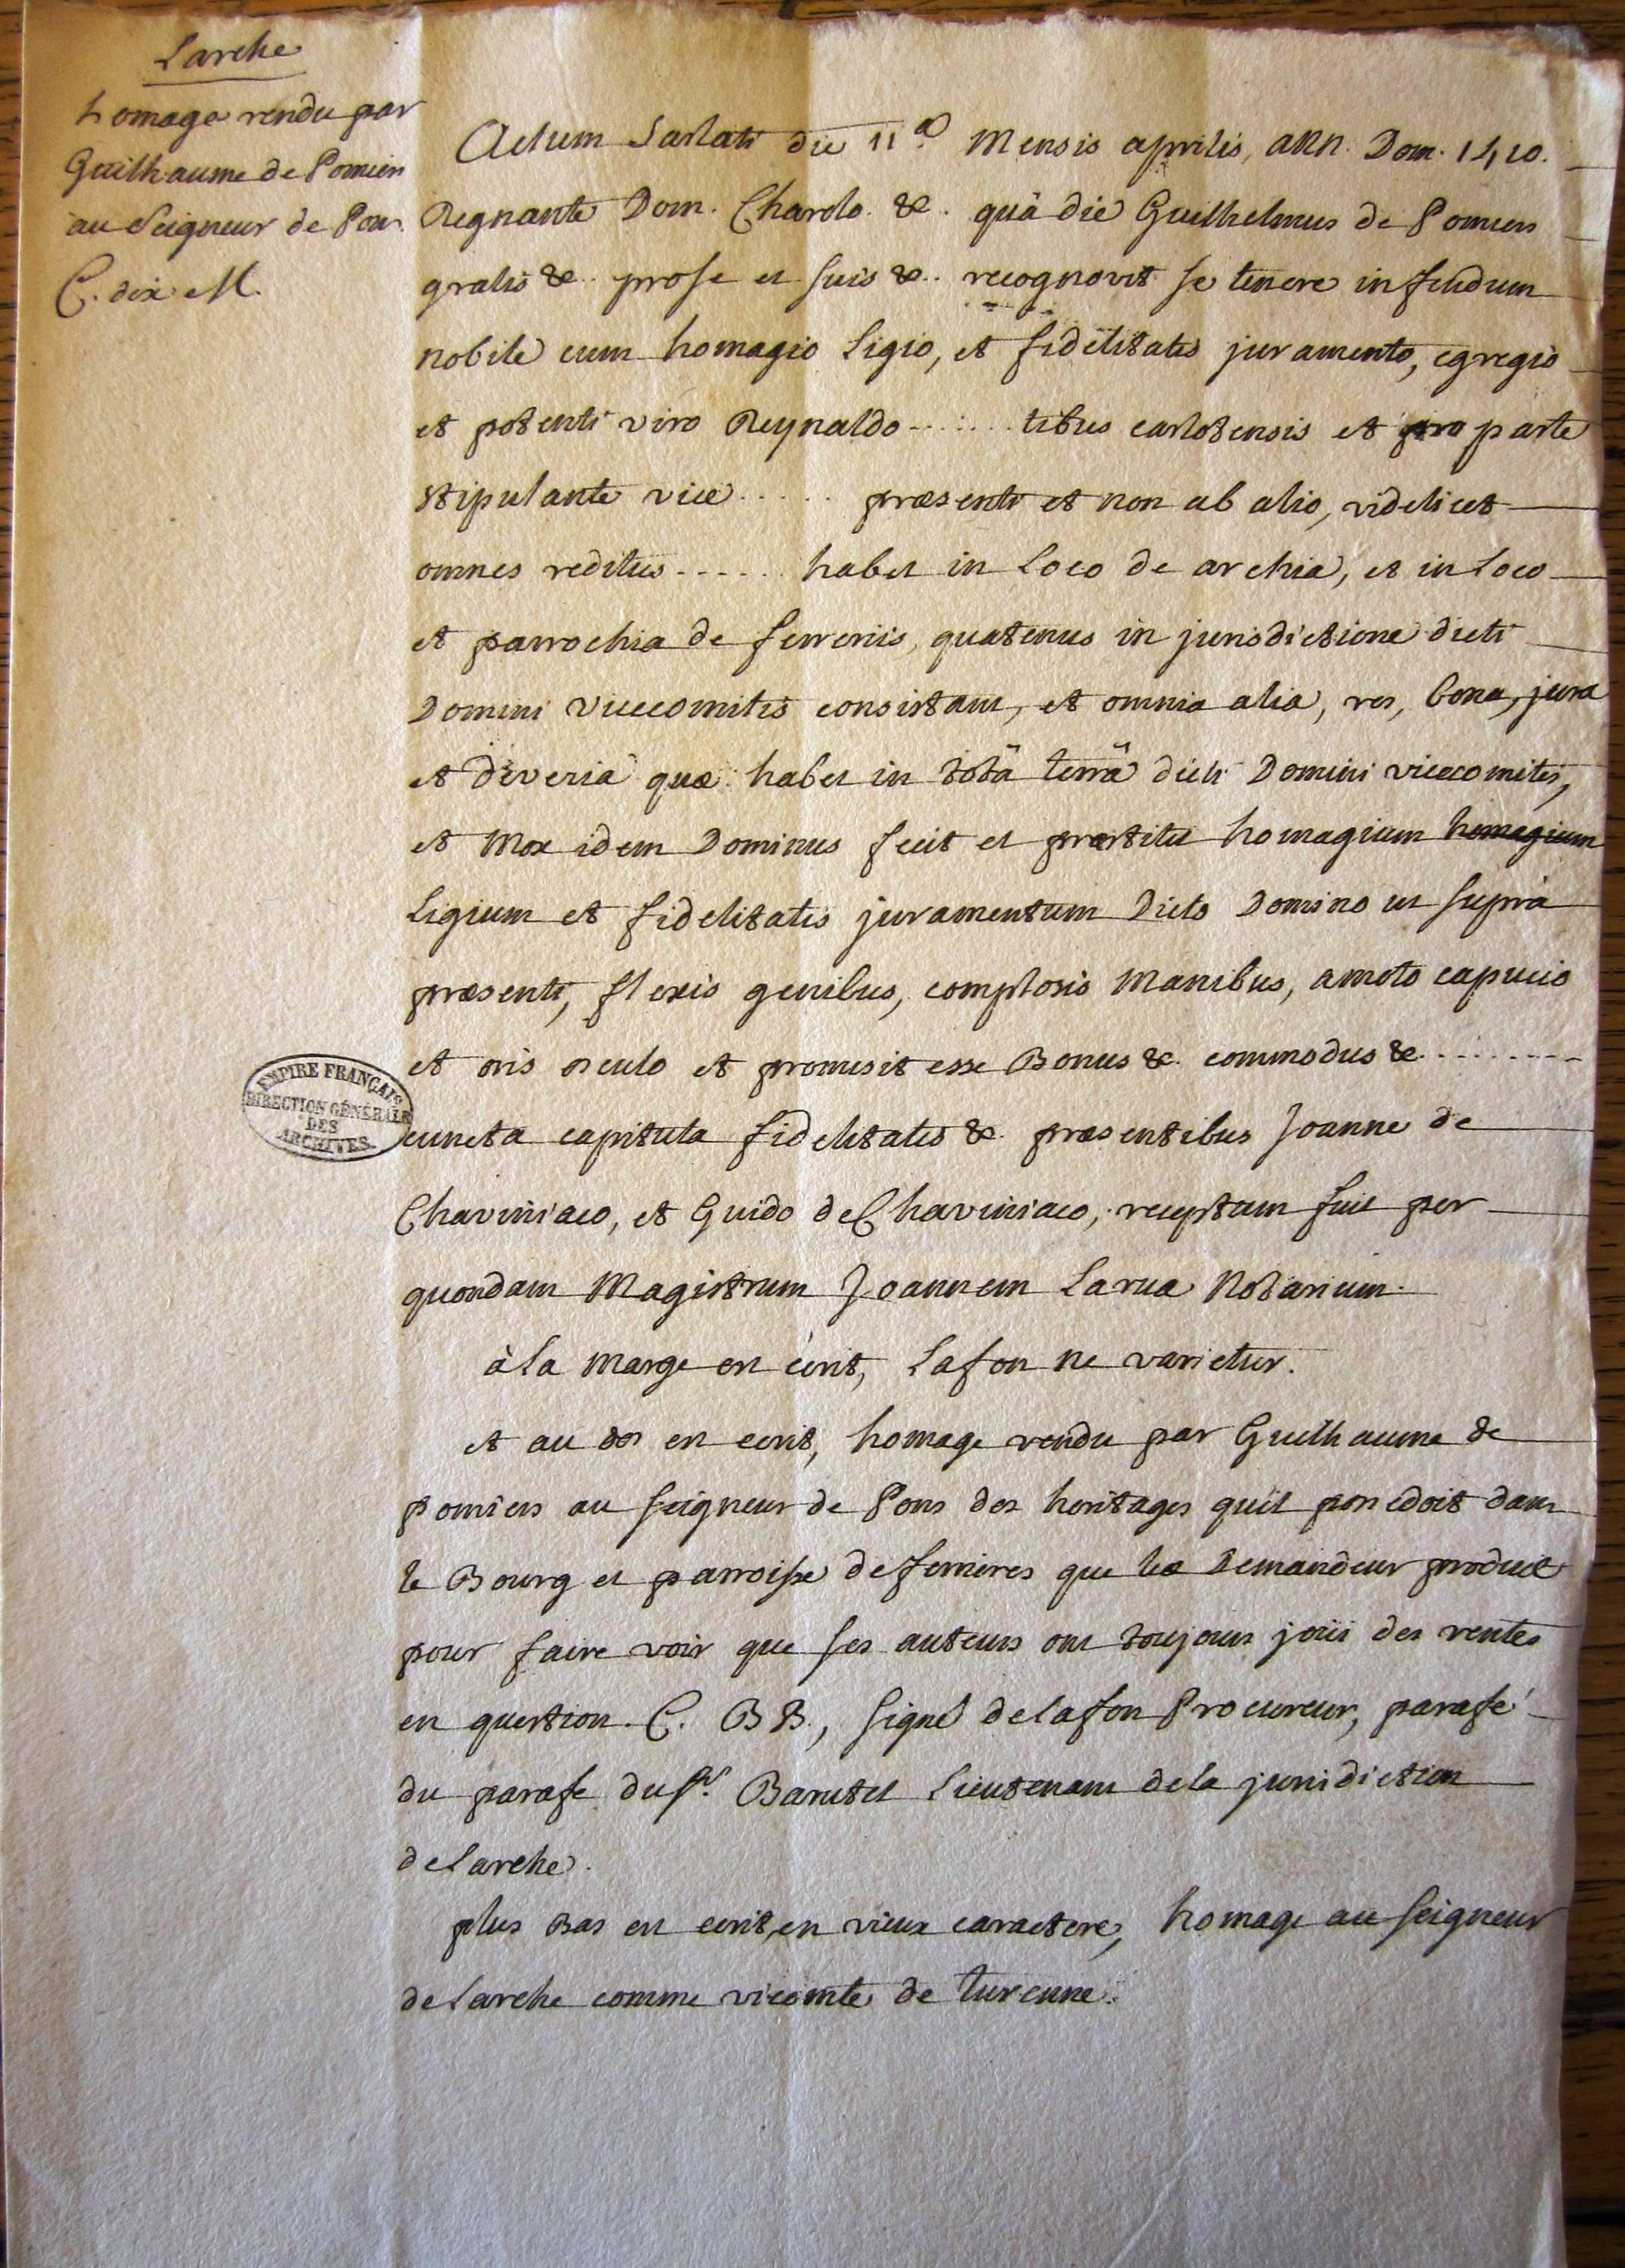 Larche
homage rendu par
Guilhaume de Pomiers
au Seigneur de Pons.
C. dix M.
Actum Sarlati die 11.a Mensis aprilis, ann. Dom. 1410.
Regnante Dom. Charolo. &. quâ die Guilhelmus de Pomiers
gratis &. pro se et suis &. recognovit se tenere in feudum
nobile cum homagio Ligio, et fidelitatis juramento, egregio
et potenti viro Reynaldo ....... tibus carlotensis et pro parte
stipulante vice ..... præsenti et non ab alio, videlicet
omnes reditus ...... habet in Loco de archia, et in Loco
et parrochia de ferreriis, quatenus in jurisdictione dicti
Domini vicecomitis consistant, et omnia alia, res, bona, jura
et deveria quæ habet in totâ terrâ dicti Domini vicecomitis,
et Mox idem Dominus fecit et præstitit homagium homagium
Ligium et fidelitatis juramentum Dicto Domino ut suprà
præsenti, flexis genibus, complosis Manibus, amoto capucio
et oris osculo et promisit esse Bonus &. commodus &. .........
cuncta capitula fidelitatis &. præsentibus Joanne de
Chaviniaco, et Guido de Chaviniaco, receptum fuit per
quondam Magistrum Joannem Larua Notarium.
à La marge est ècrit, Lafon ne varietur.
et au dos est ecrit, homage rendu par Guilhaume de
pomiers au Seigneur de Pons des heritages qu'il possedoit dans
le Bourg et parroisse de ferrieres que le Demandeur produit
pour faire voir que ses auteurs ont toujours joüi des rentes
en question. C. BB., signé delafon Procureur, parafé
du parafe du Sr. Barutel Lieutenant de la jurisdiction
de Larche.
plus Bas est ecrit, en vieux caractere, homage au Seigneur
de Larche comme vicomte de turenne.
EMPIRE FRANÇAIS
DIRECTION GÉNÉRALE
DES
ARCHIVES.